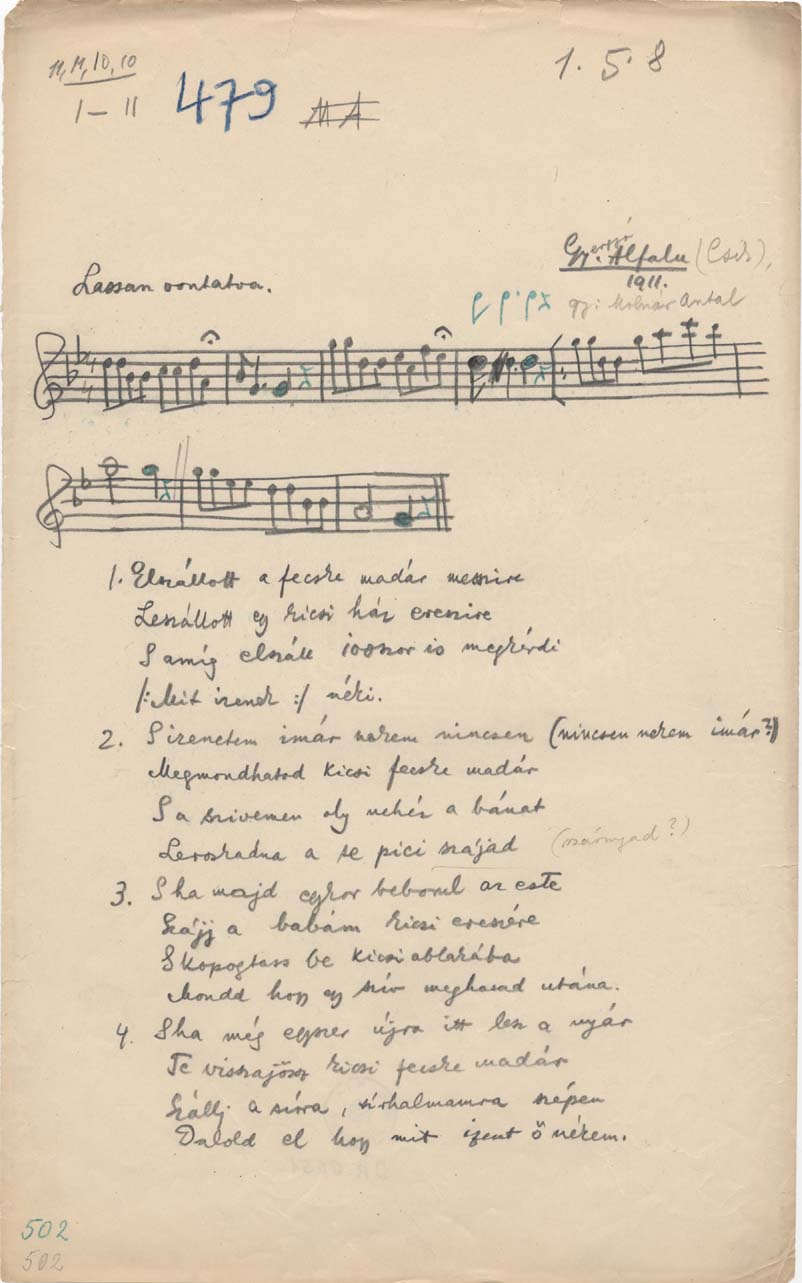 11, 11, 10, 10
I – II
479
MA
1. 5. 8
Gyergyó Alfalu (Csik),
1911.
gy: Molnár Antal
Lassan vontatva.
1. Elszállott a fecske madár messzire
Leszállott egy kicsi ház ereszire
S amíg elszáll 100szor is megkérdi
/: Mit izenek :/ néki.
2. S izenetem imár nekem nincsen (nincsen nekem imár?)
Megmondhatod kicsi fecske madár
S a szivemen oly nehéz a bánat
Leroskadna a te pici szájad (szárnyad?)
3. S ha majd egykor beborul az este
Szájj a babám kicsi ereszére
S kopogtass be kicsi ablakába
Mondd hogy egy szív meghasad utána.
4. S ha még egyszer újra itt lesz a nyár
Te visszajössz kicsi fecske madár
Szállj a sírra, sírhalmamra szépen
Dalold el hogy mit izent ő nékem.
502
502